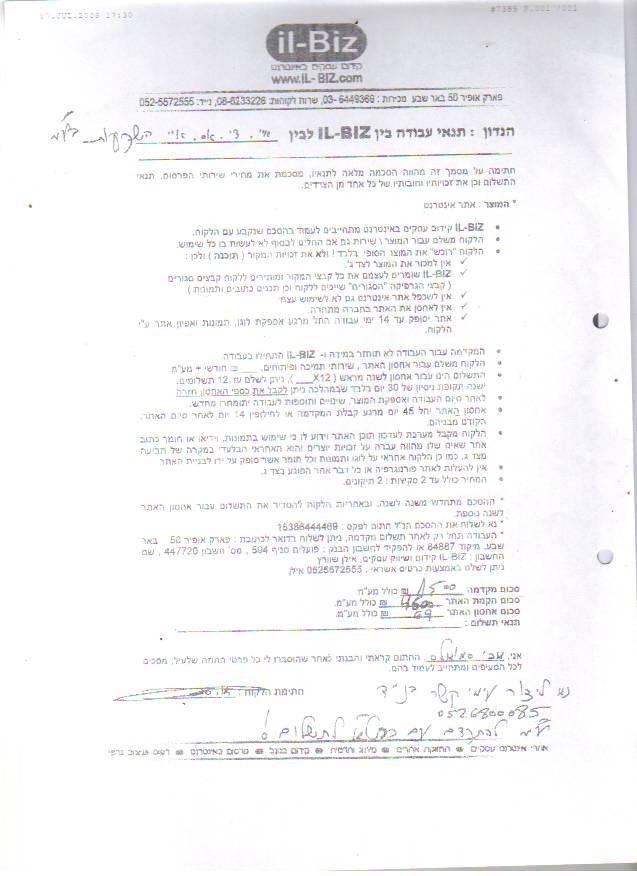 17.JUL.2008 17:30
#7385 P.001 /001
il-Biz
קידום עסקים באינטרנט
www.IL-BIZ.com
פארק אופיר 50 באר שבע מכירות : 03-6449369, שרות לקוחות: 08-6233226, נייד: 052-5572555
הנדון : תנאי עבודה בין IL-BIZ לבין מ.י. די. אס. איי השקעות בע"מ
חתימה על מסמך זה מהווה הסכמה מלאה לתנאיו, מסכמת את מחירי שירותי הפרסום, תנאי
התשלום וכן את זכויותיו וחובותיו של כל אחד מן הצדדים.
* המוצר : אתר אינטרנט
IL-BIZ קידום עסקים באינטרנט מתחייבים לעמוד בהסכם שנקבע עם הלקוח.
הלקוח משלם עבור המוצר \ שירות גם אם החליט לבסוף לא לעשות בו כל שימוש.
הלקוח "רוכש" את המוצר הסופי בלבד ! ולא את זכויות המקור ( תוכנה ) ולכן :
✓ אין למכור את המוצר לצד ג'.
✓ IL-BIZ שומרים לעצמם את כל קבצי המקור ומותירים ללקוח קבצים סגורים
( קבצי הגרפיקה "הסגורים" שייכים ללקוח וכן תכנים כתובים ותמונות ).
✓ אין לשכפל אתר אינטרנט גם לא לשימוש עצמי
✓ אין לאחסן את האתר בחברה מתחרה.
✓ אתר יסופק עד 14 ימי עבודה החל מרגע אספקת לוגו, תמונות ואפיון אתר ע"י
הלקוח.
המקדמה עבור העבודה לא תוחזר במידה ו- IL-BIZ התחילו בעבודה
הלקוח משלם עבור אחסון האתר , שירותי תמיכה ופיתוחים, ____ ₪ חודשי + מע"מ.
התשלום הינו עבור אחסון לשנה מראש ( ___X12 ), ניתן לשלם עד 12 תשלומים.
ישנה תקופת ניסיון של 30 יום בלבד שבמהלכה ניתן לקבל את כספי האחסון חזרה
לאחר סיום העבודה ואספקת המוצר, שינויים ותוספות לעבודה יתומחרו מחדש.
אחסון האתר יחל 45 יום מרגע קבלת המקדמה או לחילופין 14 יום לאחר סיום האתר,
הקודם מבניהם.
הלקוח מקבל מערכת לעדכון תוכן האתר וידוע לו כי שימוש בתמונות, וידיאו או חומר כתוב
אחר שאינו שלו מהווה עברה על זכויות יוצרים והוא האחראי הבלעדי במקרה של תביעה
מצד ג. כמו כן הלקוח אחראי על לוגו ותמונות וכל חומר אשר סופק על ידו לבניית האתר
אין להעלות לאתר פורנוגרפיה או כל דבר אחר הפוגע בצד ג.
המחיר כולל עד 2 סקיצות : 2 תיקונים.
* ההסכם מתחדש משנה לשנה, ובאחריות הלקוח להסדיר את התשלום עבור אחסון האתר
לשנה נוספת.
* נא לשלוח את ההסכם הנ"ל חתום לפקס : 15386444469
* העבודה תחל רק לאחר תשלום מקדמה, ניתן לשלוח בדואר לכתובת : פארק אופיר 50 באר
שבע, מיקוד 84887 או להפקיד לחשבון הבנק : פועלים סניף 594 , מס' חשבון 447720 , שם
החשבון : IL-BIZ קידום ושיווק עסקים, אילן שוורץ
ניתן לשלוח באמצעות כרטיס אשראי , 0525572555 אילן
סכום מקדמה 1500 ₪ כולל מע"מ
סכום הקמת האתר 4500 ₪ כולל מע"מ.
סכום אחסון האתר 69 ₪ כולל מע"מ.
תנאי תשלום :
אני, החתום קראתי והבנתי לאחר שהוסברו לי כל פרטי החוזה שלעיל, מסכים
לכל הסעיפים ומתחייב לעמוד בהם.
חתימת הלקוח :
נא ליצור עימי קשר בנייד
0526800085
ע"מ להתקדם עם לתשלום !
אתרי אינטרנט עסקיים קידום בגוגל פרסום באינטרנט דפוס ועיצוב גרפי